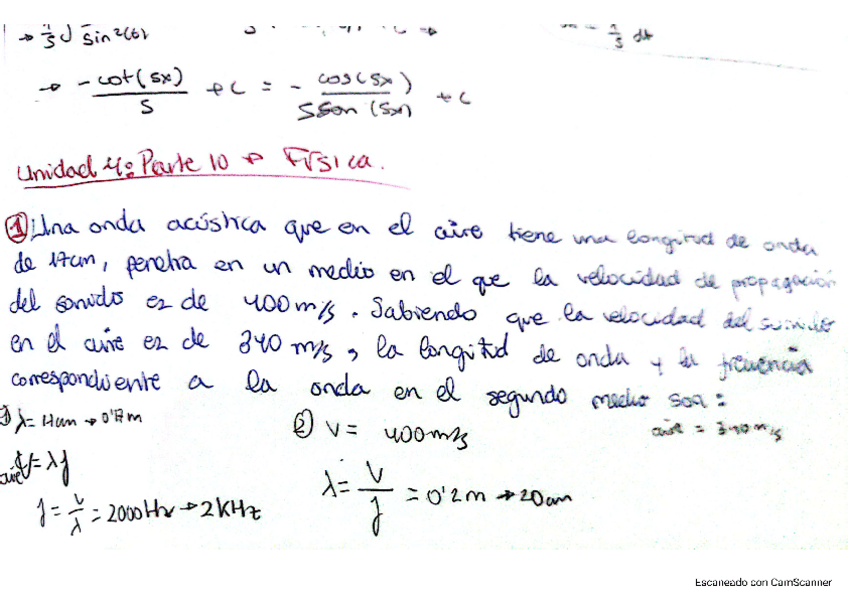 → 1/5 ∫ sin²(t)
1/5 dt
→ -cot(5x)/5 + C = - cos(5x)/5sen(5x) + C
Unidad 4: Parte 10 → Física.
① Una onda acústica que en el aire tiene una longitud de onda
de 17cm, penetra en un medio en el que la velocidad de propagación
del sonido es de 400 m/s. Sabiendo que la velocidad del sonido
en el aire es de 340 m/s, la longitud de onda y la frecuencia
correspondiente a la onda en el segundo medio son:
λ = 17cm → 0'17 m
② v = 400 m/s
aire = 340 m/s
aire v = λf
f = v/λ = 2000 Hz → 2 KHz
λ = v/f = 0'2 m → 20cm
Escaneado con CamScanner